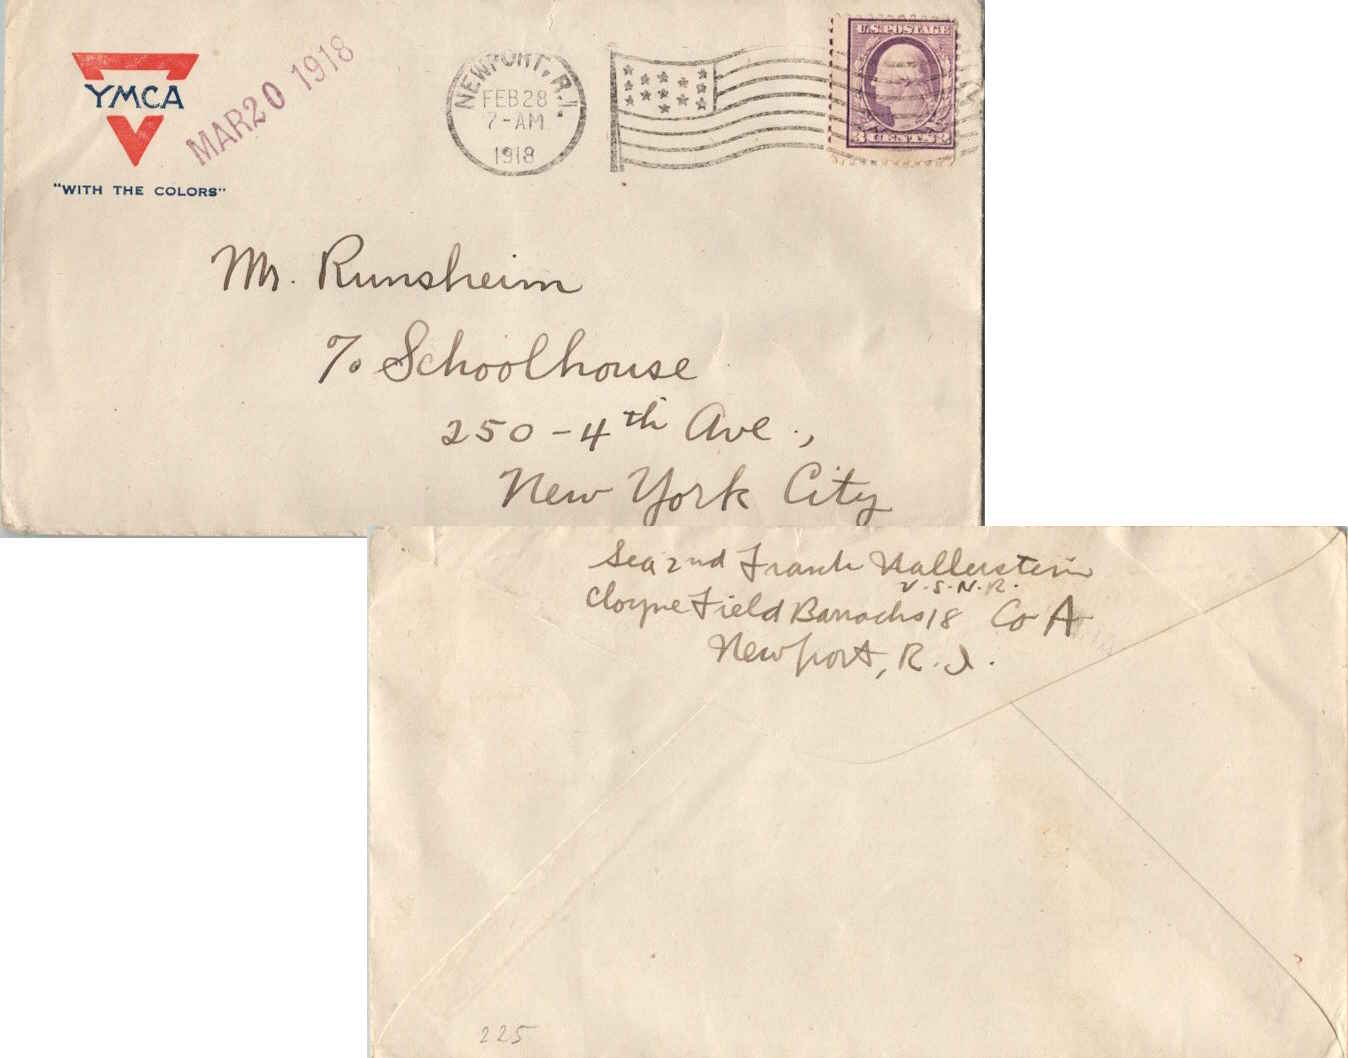 YMCA
"WITH THE COLORS"
MAR 20 1918
NEWPORT, R.I.
FEB 28
7-AM
1918
U.S. POSTAGE
3 CENTS 3
Mr. Runsheim
℅ Schoolhouse
250-4th Ave.,
New York City
Sea 2nd Frank Wallerstein
U.S.N.R.
Cloyne Field Barracks 18 Co A
Newport, R.I.
225